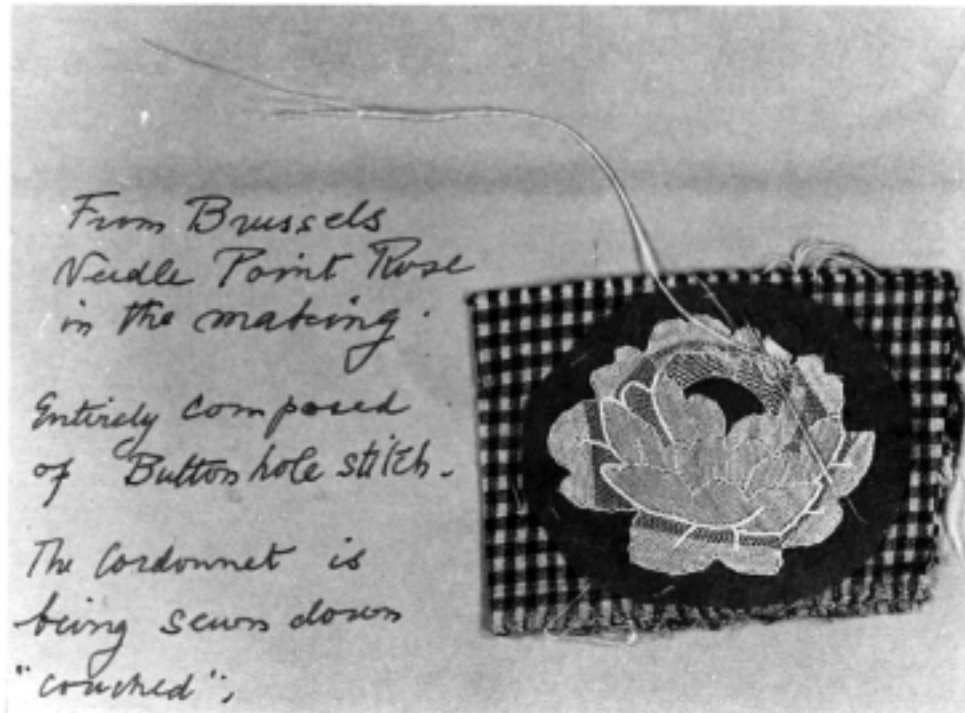 From Brussels
Needle Point Rose
in the making.
Entirely composed
of Button hole stitch.
The Cordonnet is
being sewn down
"couched",